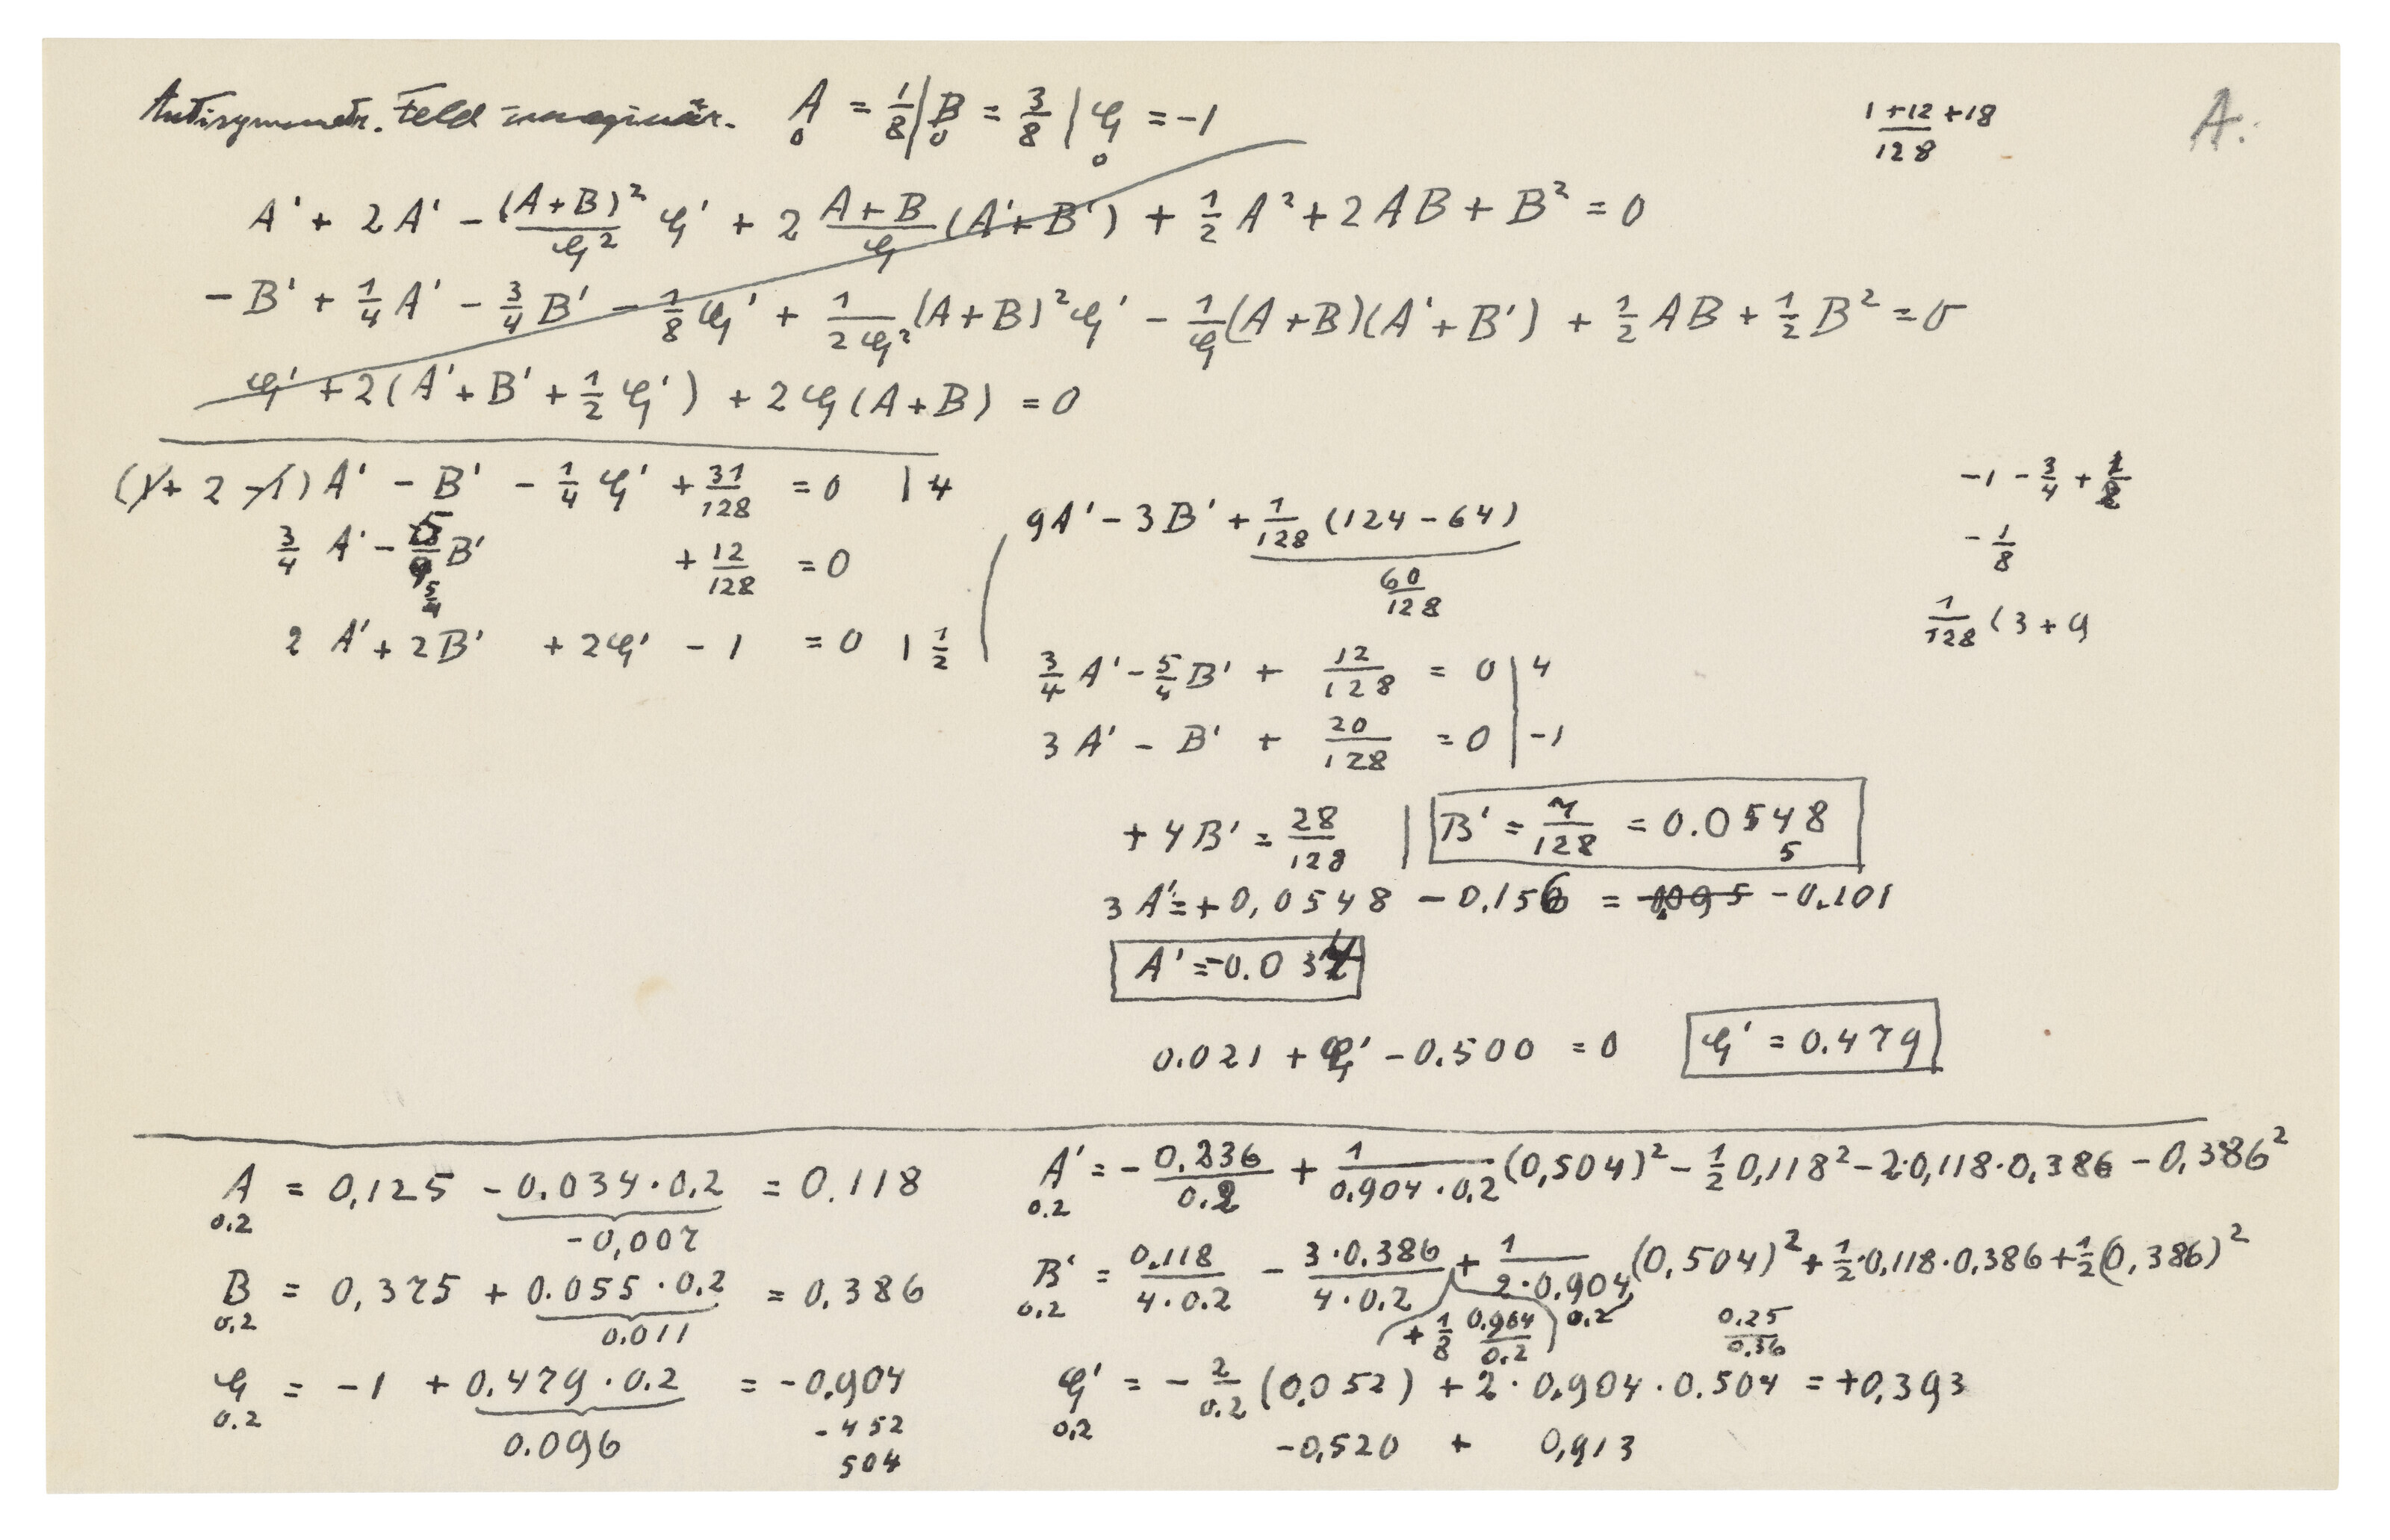 Antisymmetr. Feld imaginär. A₀ = 1/8 | B₀ = 3/8 | φ₀ = -1
1 + 12 + 18 / 128
A.
A' + 2A' - (A+B)²/φ² φ' + 2 (A+B)/φ (A'+B') + 1/2 A² + 2AB + B² = 0
- B' + 1/4 A' - 3/4 B' - 1/8 φ' + 1/(2φ²) (A+B)² φ' - 1/φ (A+B)(A'+B') + 1/2 AB + 1/2 B² = 0
φ' + 2(A' + B' + 1/2 φ') + 2φ(A+B) = 0
(1 + 2 - 1) A' - B' - 1/4 φ' + 31/128 = 0 | 4
3/4 A' - 5/4 B' + 12/128 = 0
2 A' + 2B' + 2φ' - 1 = 0 | 1/2
9A' - 3B' + 1/128 (124 - 64)
60/128
3/4 A' - 5/4 B' + 12/128 = 0 | 4
3 A' - B' + 20/128 = 0 | -1
+ 4B' = 28/128 | B' = 7/128 = 0.0548
5
3 A' = + 0,0548 - 0.156 = -0.101
A' = -0.034
0.021 + φ' - 0.500 = 0 φ' = 0.479
-1 - 3/4 + 1/2
- 1/8
1/128 (3 + 9
A 0.2 = 0,125 - 0.034 · 0.2 = 0.118
-0,007
B 0.2 = 0,375 + 0.055 · 0.2 = 0,386
0.011
φ 0.2 = -1 + 0.479 · 0.2 = -0.904
0.096
- 452
504
A' 0.2 = - 0.236/0.2 + 1/(0.904 · 0.2) (0,504)² - 1/2 0,118² - 2·0,118·0,386 - 0,386²
B' 0.2 = 0.118/(4 · 0.2) - 3·0.386/(4 · 0.2) + 1/(2·0.904 0.2) (0,504)² + 1/2·0,118·0,386 + 1/2(0,386)²
+ 1/8 0.904/0.2
0.25/0.36
φ' 0.2 = - 2/0.2 (0.052) + 2 · 0.904 · 0.504 = +0,393
-0,520 + 0,913